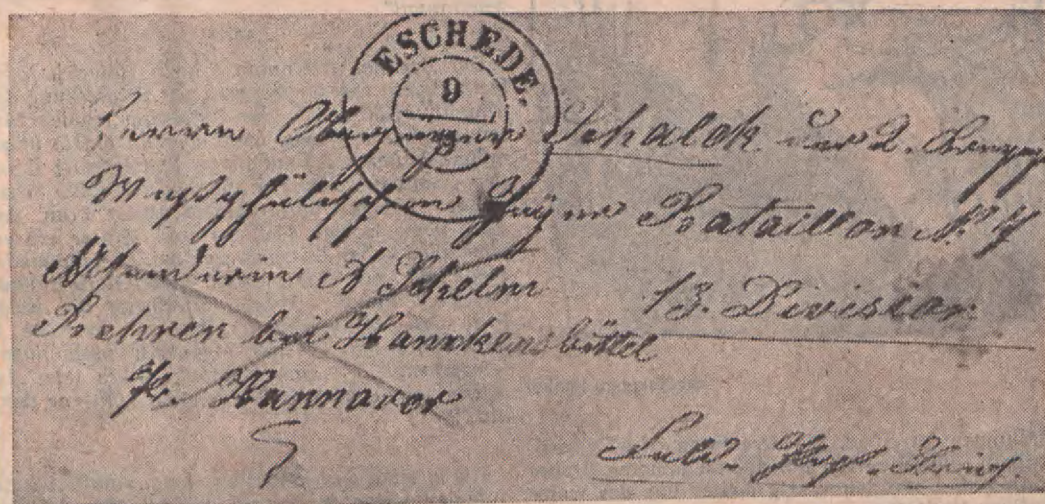 ESCHEDE.
9
Herrn Oberjäger Schalok der 2. Comp
Westphälischen Jäger Bataillon N. 7
Absenderin A Schelm 13. Division
Behren bei Hankensbüttel
Pr. Hannover